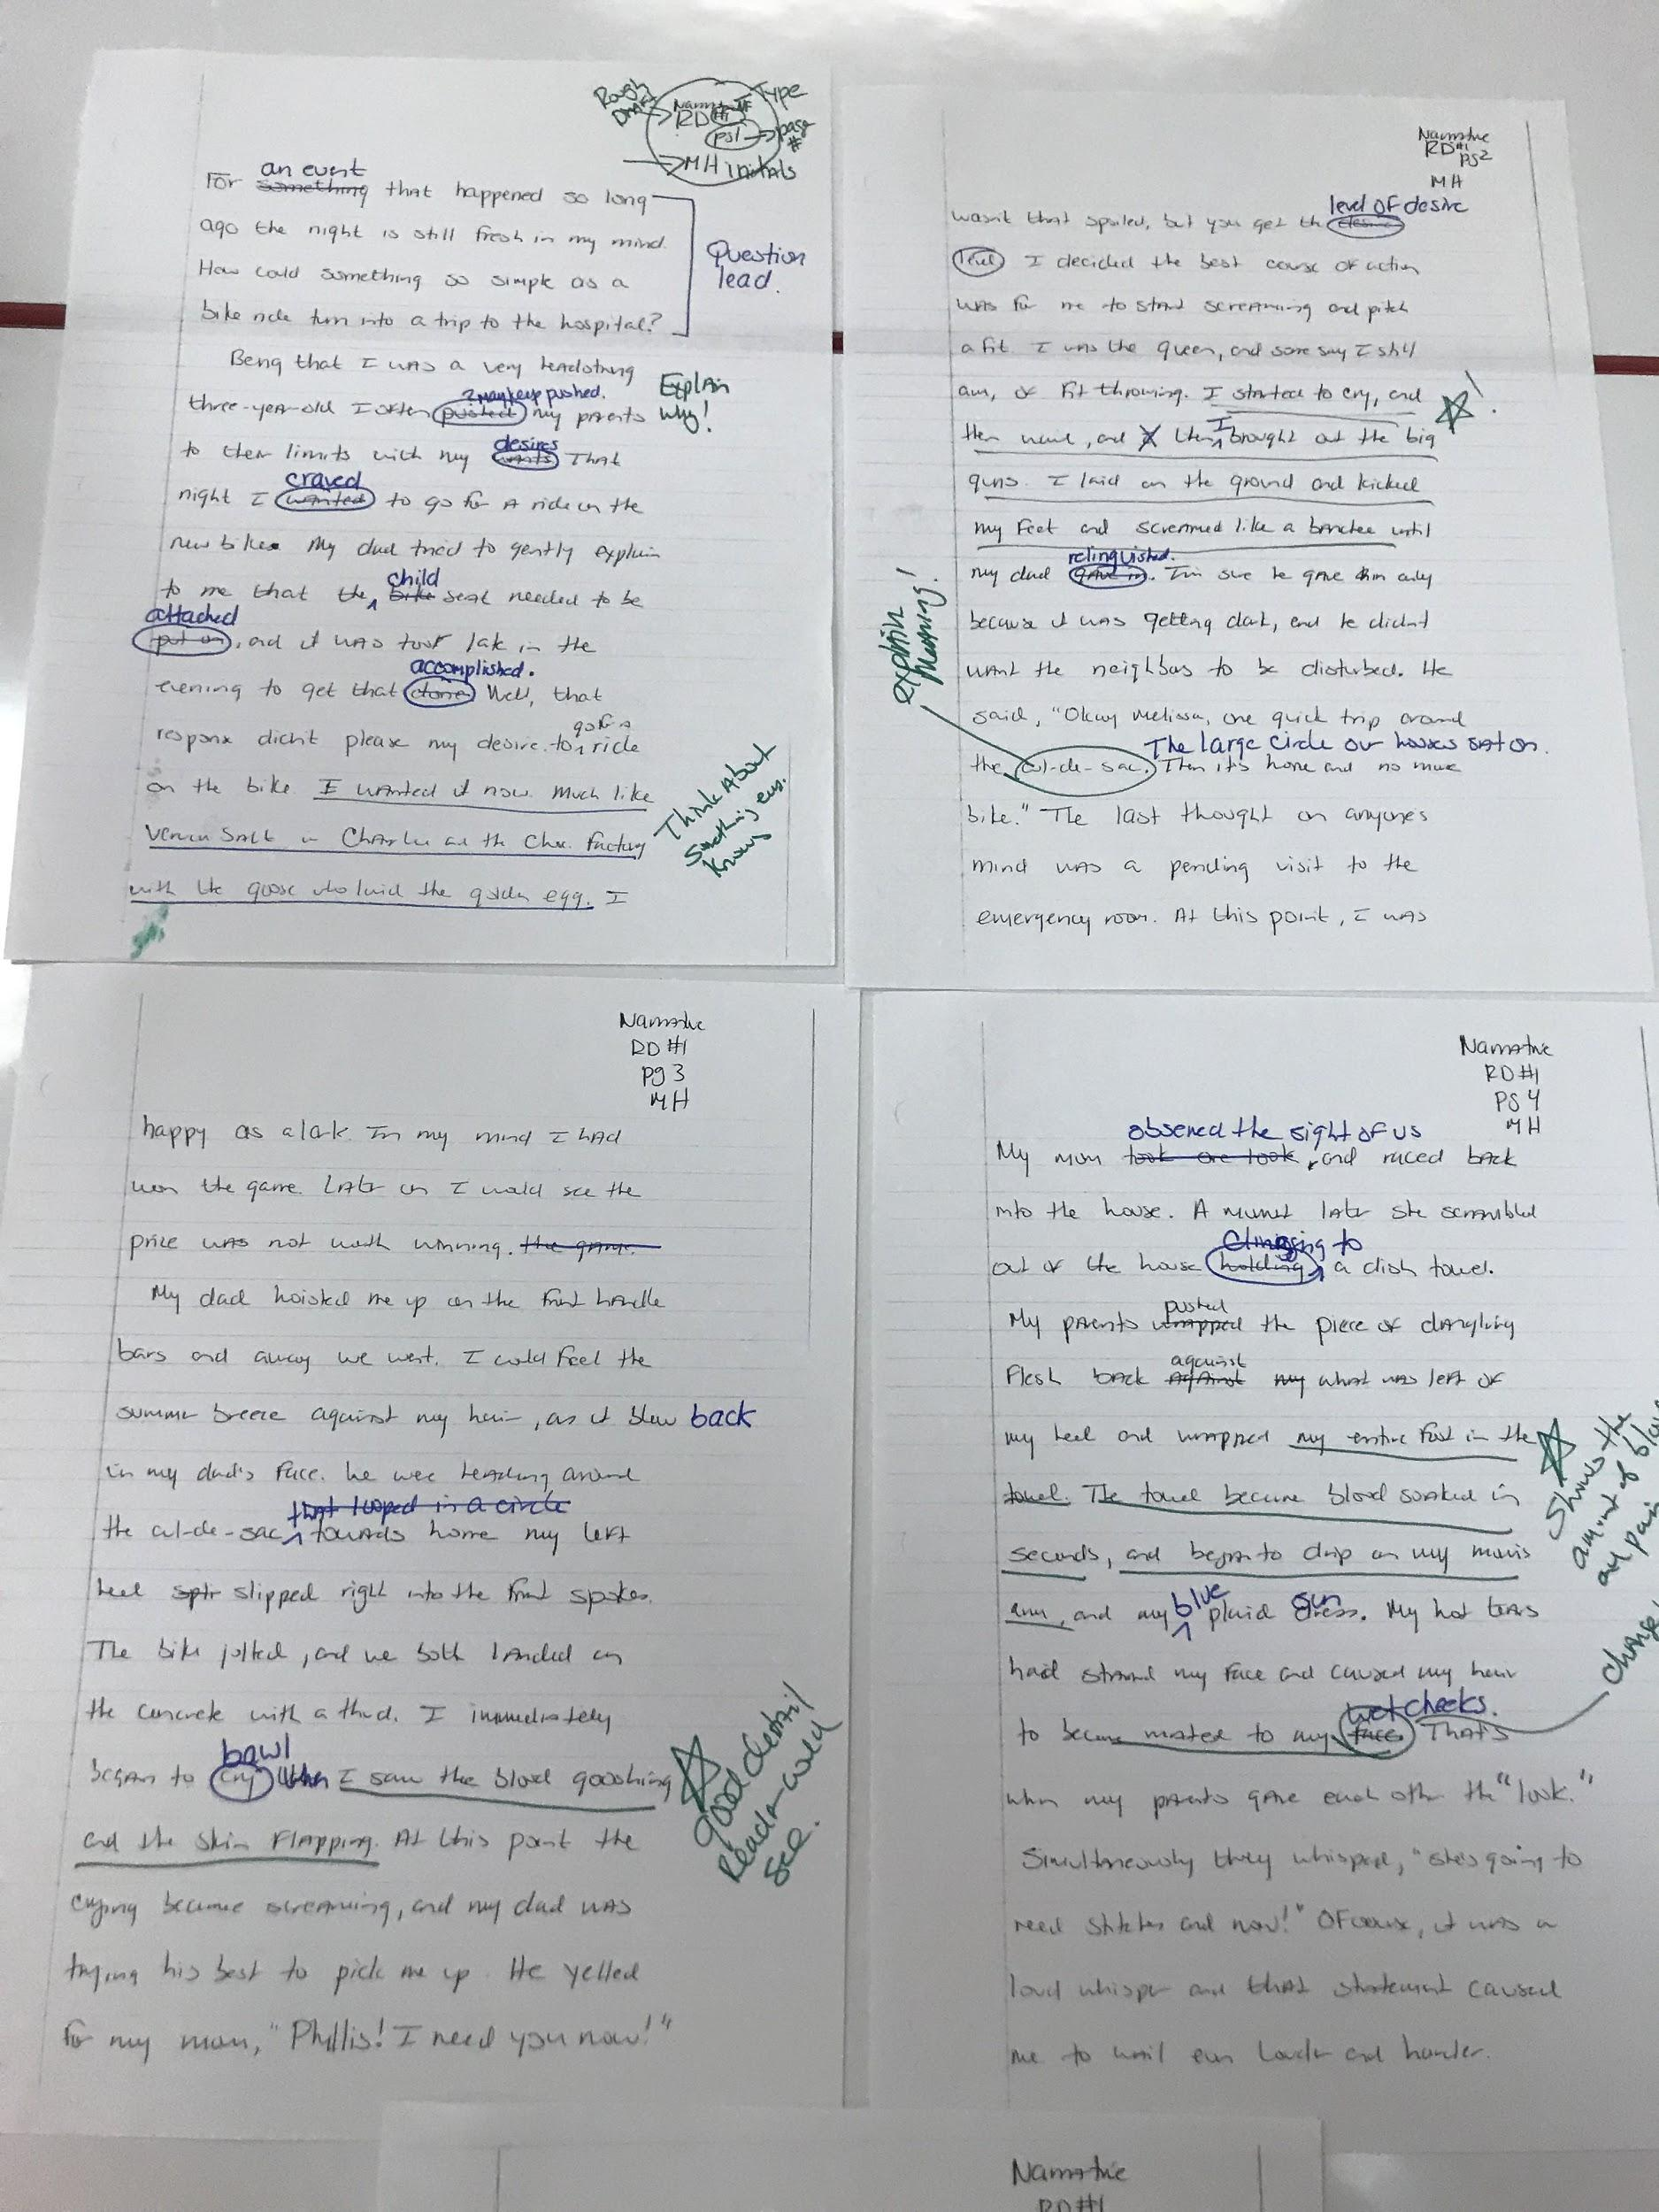 Rough Draft
Type
Narrative
RD #1
pg1 → page #
→ MH initials
an event
For something that happened so long
ago the night is still fresh in my mind.
How could something so simple as a
bike ride turn into a trip to the hospital?
Question lead.
Being that I was a very headstrong
? may keep pushed.
three-year-old I often pushed my parents
Explain why!
desires
to their limits with my wants That
craved
night I wanted to go for a ride on the
new bike. My dad tried to gently explain
child
to me that the bike seat needed to be
attached
put on, and it was too late in the
accomplished.
evening to get that done Well, that
go for a
response didn't please my desire to ride
on the bike. I wanted it now. Much like
Veruca Salt in Charlie and the Choc. Factory
with the goose who laid the golden egg. I
Think About
Something
knows
Narrative
RD #1
pg2
MH
level of desire
wasn't that spoiled, but you get the desire
level I decided the best course of action
was for me to start screaming and pitch
a fit. I was the queen, and some say I still
am, of fit throwing. I started to cry, and
I
then wail, and then brought out the big
guns. I laid on the ground and kicked
my feet and screamed like a banchee until
relinquished.
my dad gave in. I'm sure he gave in only
because it was getting dark, and he didn't
want the neighbors to be disturbed. He
said, "Okay Melissa, one quick trip around
The large circle our houses sat on.
the cul-de-sac. Then it's home and no more
bike." The last thought on anyones
mind was a pending visit to the
emergency room. At this point, I was
explain meaning!
Narrative
RD #1
pg 3
MH
happy as a lark. In my mind I had
won the game. Later on I would see the
price was not worth winning. the game.
My dad hoisted me up on the front handle
bars and away we went. I could feel the
summer breeze against my hair, as it blew back
in my dad's face. he were heading around
that looped in a circle
the cul-de-sac towards home my left
heel slipped right into the front spokes.
The bike jolted, and we both landed on
the concrete with a thud. I immediately
bawl
began to cry when I saw the blood gooshing
and the skin flapping. At this point the
crying became screaming, and my dad was
trying his best to pick me up. He yelled
for my mom, "Phyllis! I need you now!"
good detail
Reader could
see.
Narrative
RD #1
pg 4
MH
observed the sight of us
My mom took one look, and raced back
into the house. A minute later she scrambled
clinging to
out of the house holding a dish towel.
pushed
My parents wrapped the piece of dangling
against
flesh back against my what was left of
my heel and wrapped my entire foot in the
towel. The towel became blood soaked in
seconds, and began to drip on my mom's
blue sun
arm, and my plaid dress. My hot tears
had stained my face and caused my hair
wet cheeks.
to become mated to my face. That's
when my parents gave each other the "look."
Simultaneously they whispered, "she's going to
need stitches and now!" Of course, it was a
loud whisper and that statement caused
me to wail even louder and harder.
Shows the
amount of
and
Change
Narrative
RD #1